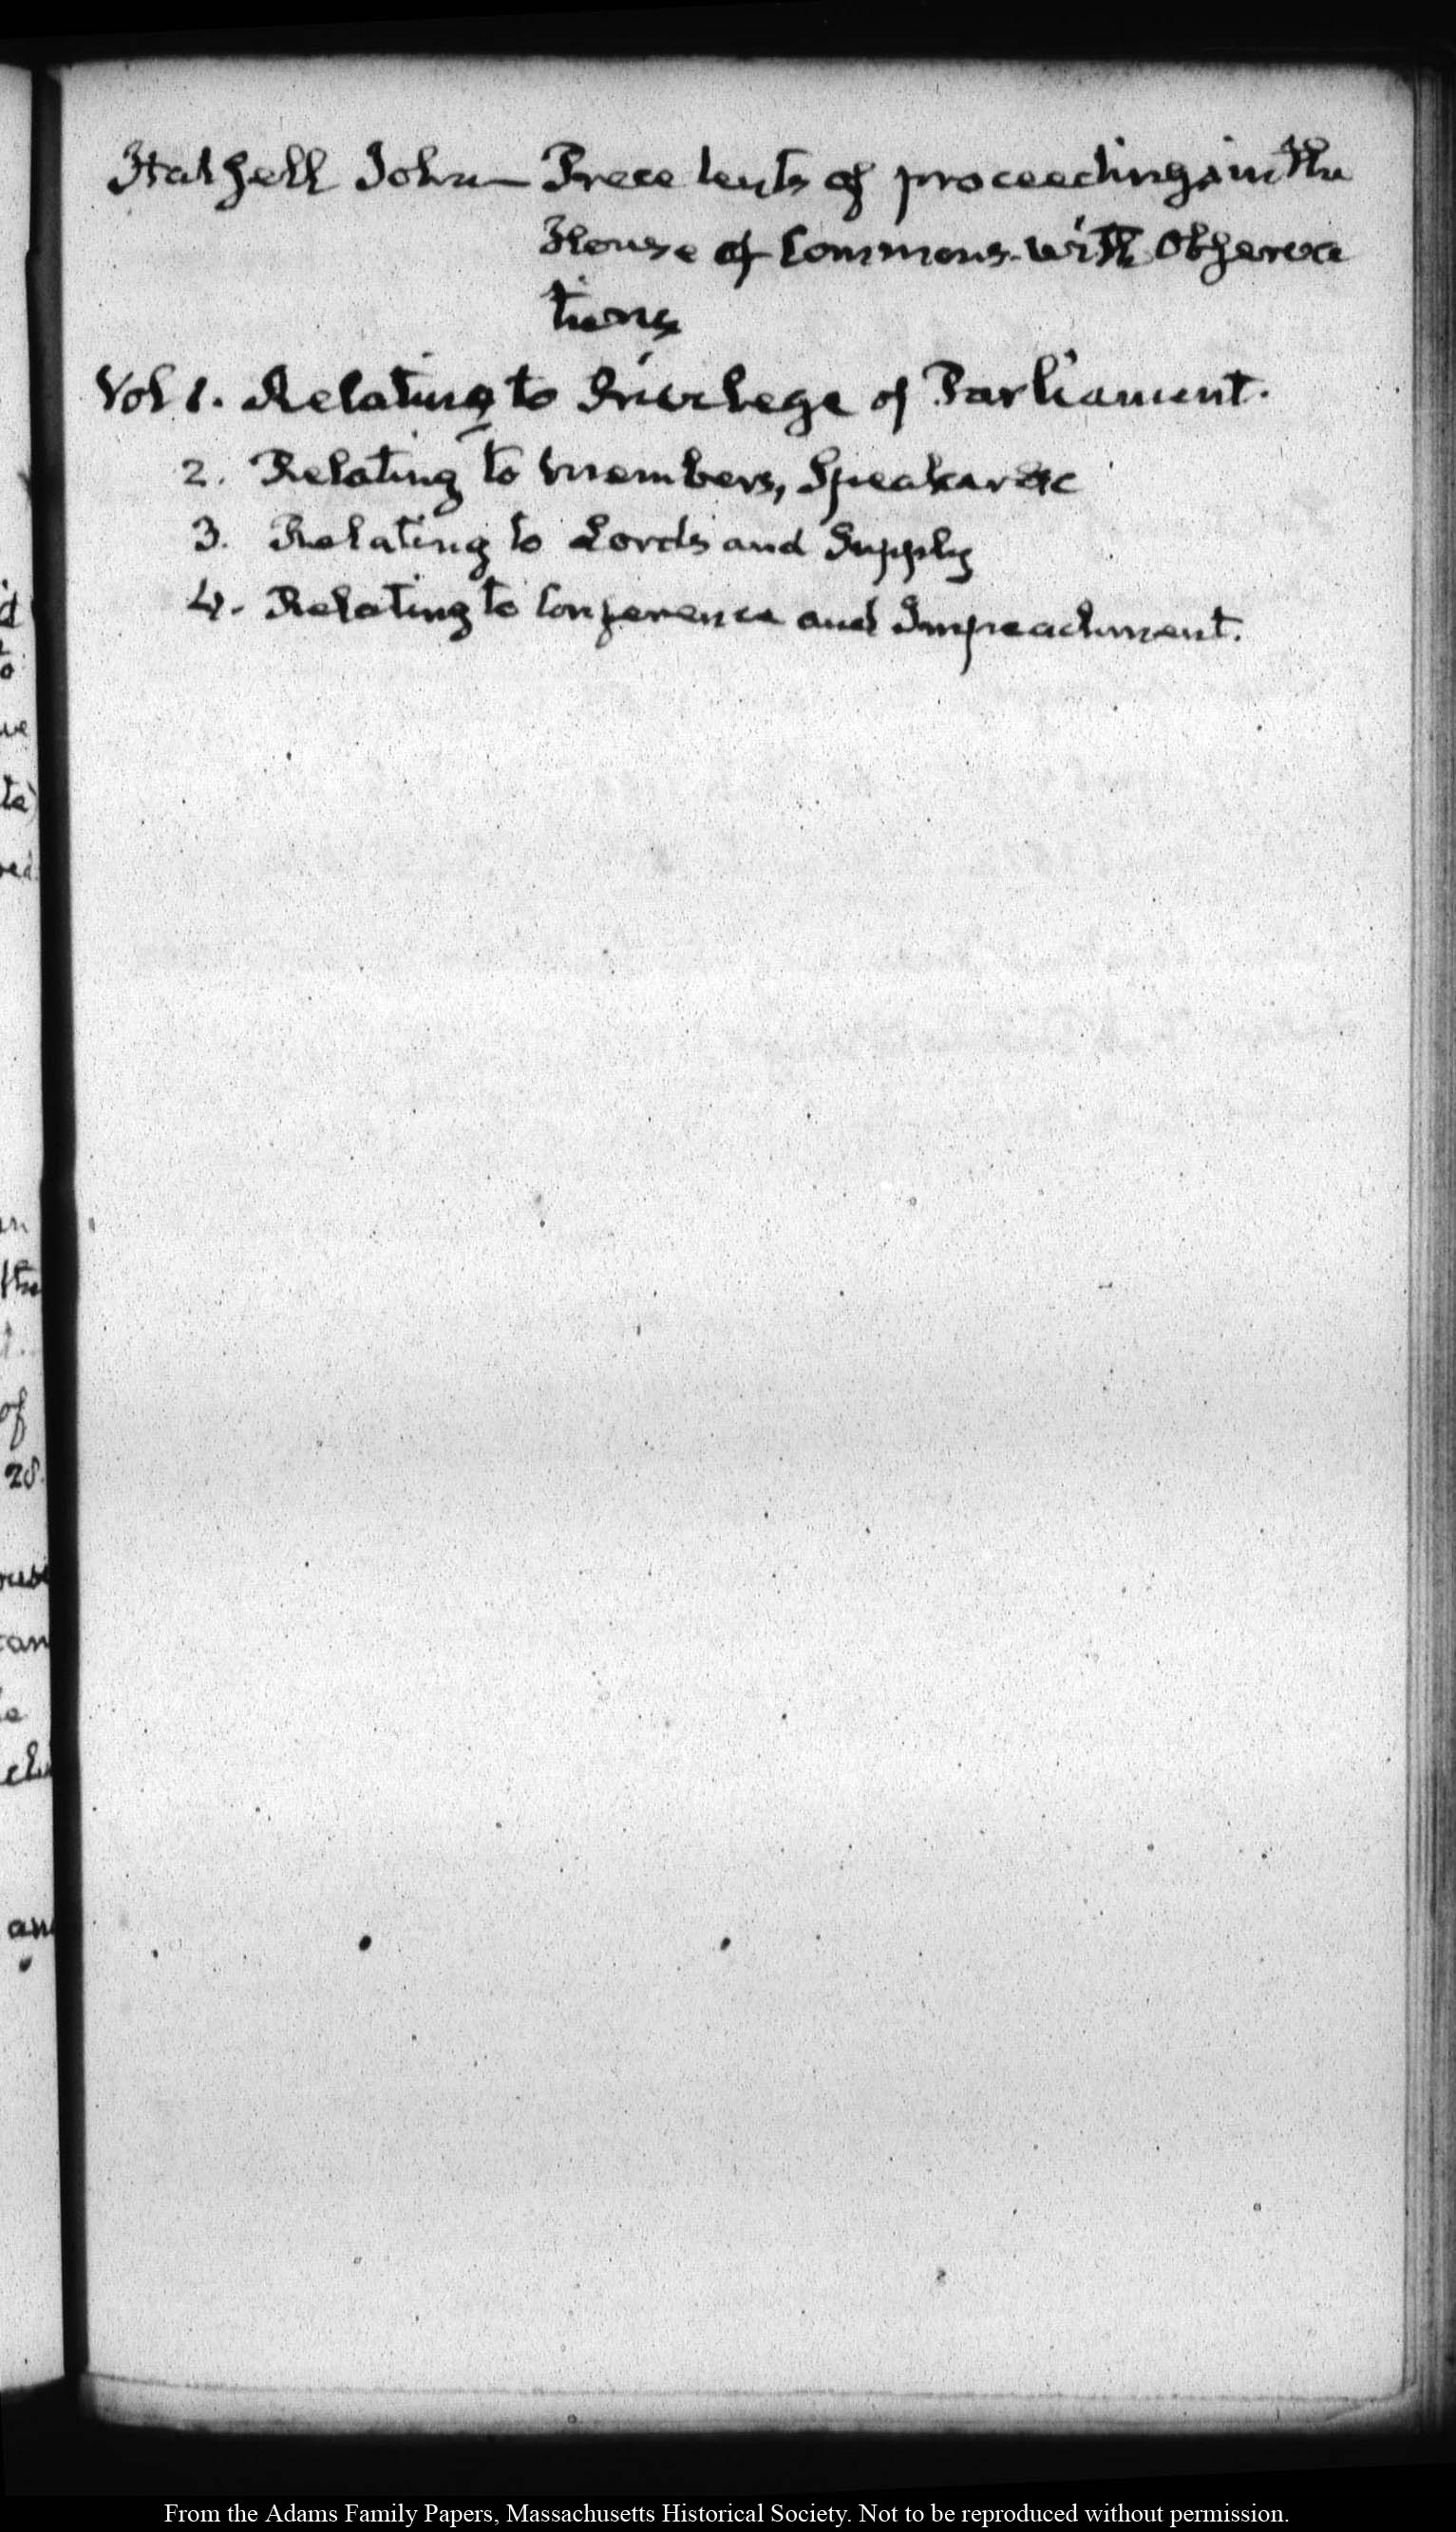 Hatsell John — Precedents of proceedings in the
House of Commons with Observa
tions
Vol 1. Relating to Privilege of Parliament.
2. Relating to Members, Speaker &c
3. Relating to Lords and Supply
4. Relating to Conference and Impeachment.
d
to
ve
ta)
red.
in
the
of
28.
can
e
an
From the Adams Family Papers, Massachusetts Historical Society. Not to be reproduced without permission.